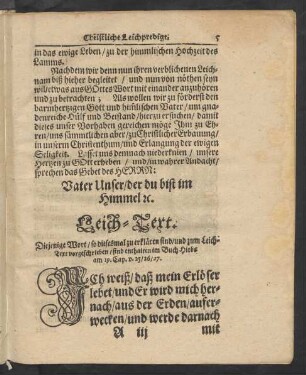 Christliche Leichpredigt. 5
in das ewige Leben / zu der himmlischen Hochzeit des
Lamms.
Nachdem wir denn nun ihren verblichenen Leich-
nam biß hieher begleitet / und nun von nöthen seyn
will etwas aus Gottes Wort mit einander anzuhören
und zu betrachten; Als wollen wir zu förderst den
barmhertzigen Gott und himlischen Vater / um gna-
denreiche Hülf und Beystand / hierzu ersuchen / damit
dieses unser Vorhaben gereichen möge Ihm zu Eh-
ren / uns sämmtlichen aber / zu Christlicher Erbauung /
in unserm Christenthum / und Erlangung der ewigen
Seligkeit. Lasset uns demnach niederknien / unsere
Hertzen zu Gott erheben / und / in wahrer Andacht /
sprechen das Gebet des HERRN:
Vater Unser / der du bist im
Himmel ꝛc.
Leich-Text.
Diejenige Wort / so dißmal zu erklären sind / und zum Leich-
Text vorgeschrieben / sind enthalten im Buch Hiobs
am 19. Cap. v. 25 / 26 / 27.
ICh weiß / daß mein Erlöser
lebet / und Er wird mich her-
nach / aus der Erden / aufer-
wecken / und werde darnach
A iij mit